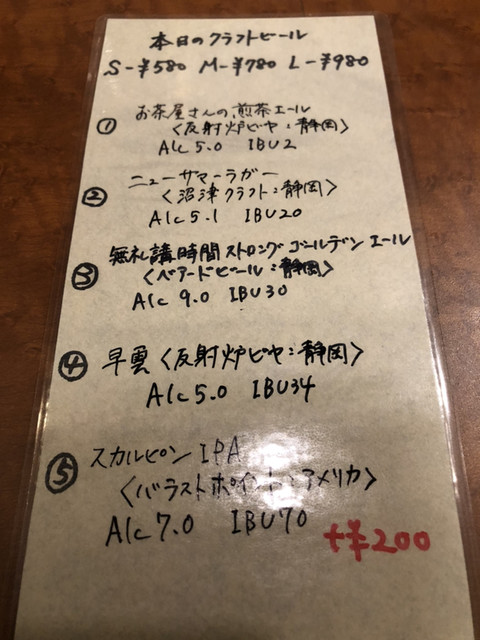 本日のクラフトビール
S-¥580 M-¥780 L-¥980
① お茶屋さんの煎茶エール
<反射炉ビヤ:静岡>
Alc 5.0 IBU2
② ニューサマーラガー
<沼津クラフト:静岡>
Alc 5.1 IBU20
③ 無礼講時間ストロングゴールデンエール
<ベアードビール:静岡>
Alc 9.0 IBU30
④ 早雲<反射炉ビヤ:静岡>
Alc 5.0 IBU34
⑤ スカルピン IPA
<バラストポイント:アメリカ>
Alc 7.0 IBU70
+¥200